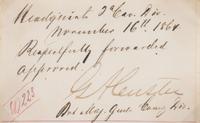 Headquarters 3d Cav. Div.
November 16th. 1864
Respectfully forwarded
approved
G A Custer
Bvt Maj. Genl. Comg Div.
223